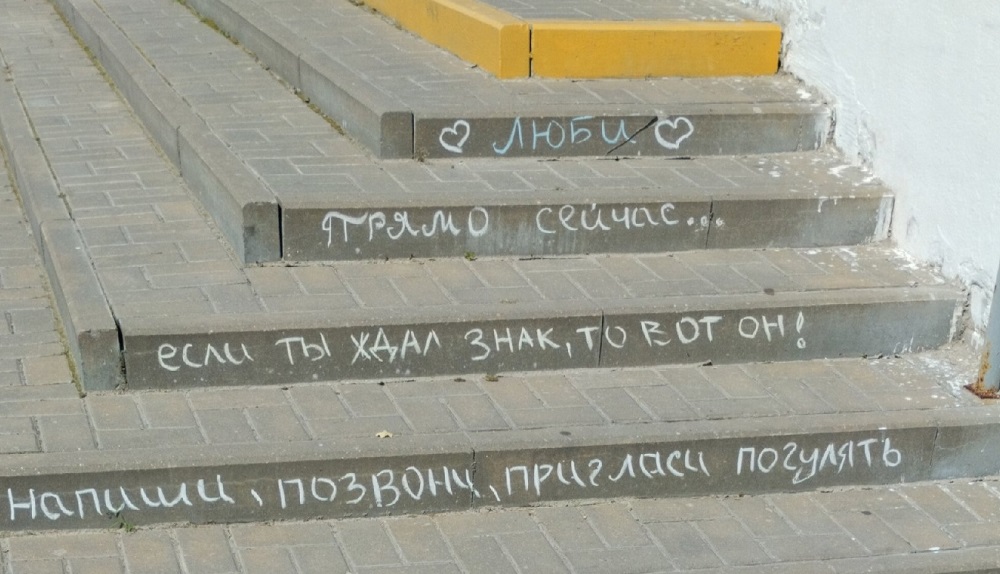 ♡ ЛЮБИ ♡
ПРЯМО СЕЙЧАС...
если ты ЖДАЛ ЗНАК, ТО ВОТ ОН!
напиши, позвони, пригласи погулять